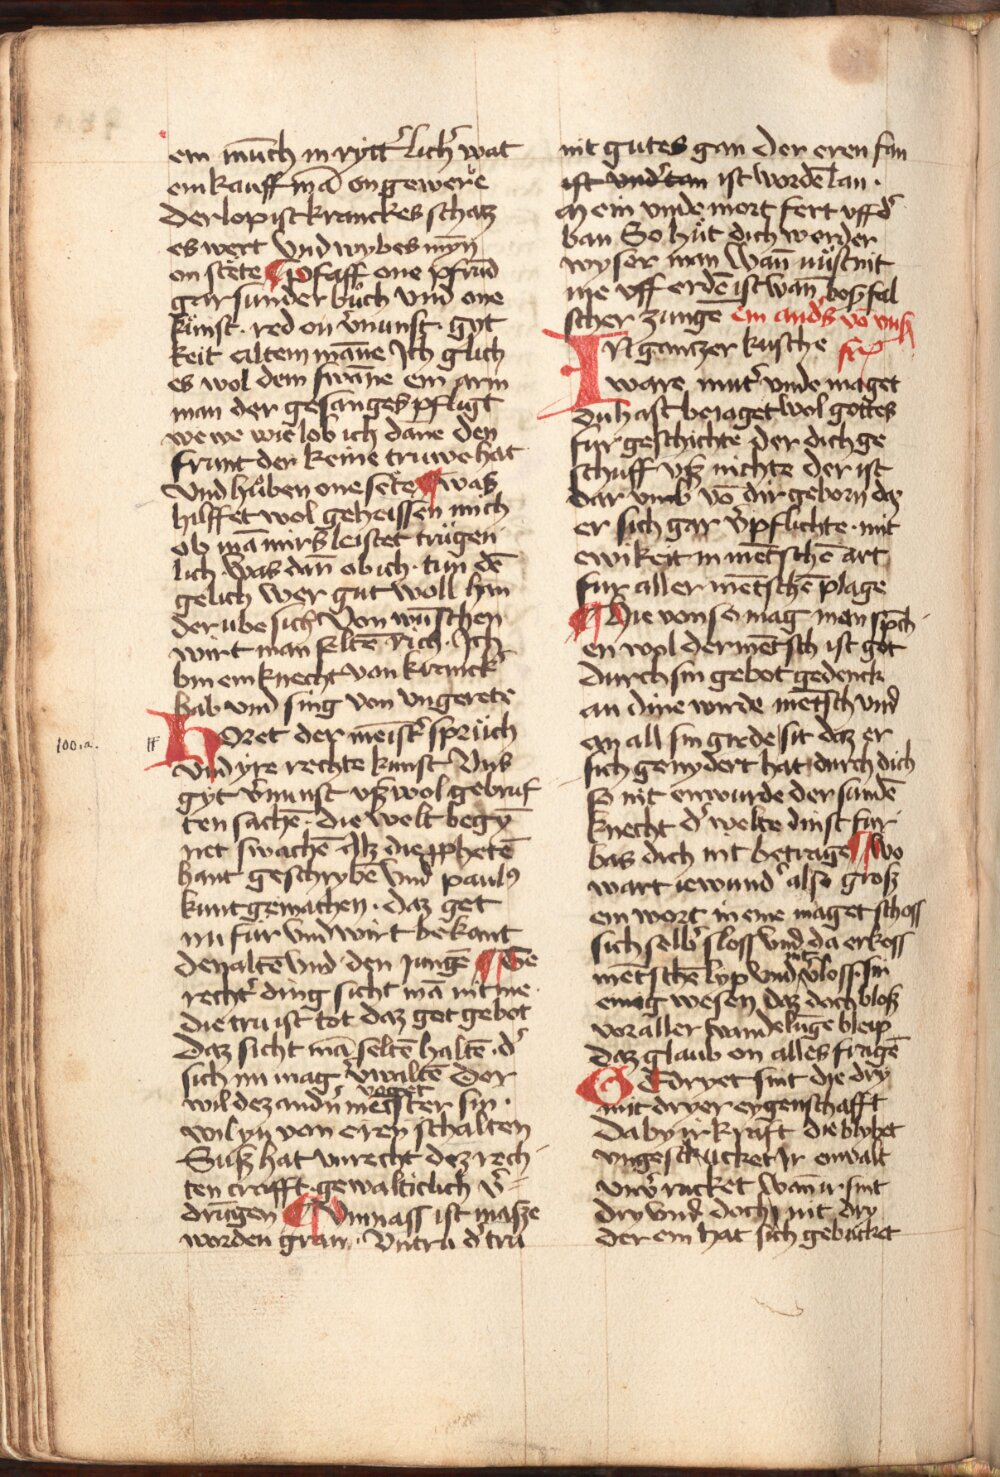 ein mūch in rytt᷑ lich᷑ wat
ein kauff mā on gewere
Der lop ist kranckes schatz
es wert Vnd wybes myn̄
on stete ¶ Pfaff one pfrūd
gar sunder bůch vnd one
kunst · red on v᷑nunst · gyt
keit altem māne Ich glich
es wol dem swane ein arm
man der gesanges pfligt
we we wie lob ich dane den
frunt der keine truwe hat
Vnd huͤben one sete ¶ was
hilffet wol geheissen mich
ob mā mirs leistet truͤgen
lich was dan̄ ob ich · tun dē
gelich wer gut woll hin
der ube sich Von wūschen
wirt man seltē rich · Ich
bin ein knecht von kranck᷑
hab vnd sing von vngerete
100.a.
HOret der meist᷑ spruͤch
Vnd yre rechte kunst Vns
gyt v᷑nunst vsz wol gebruf
ten sachē · die welt begȳ
net swachē Als die ꝓphetē
hant geschrybē vnd paulꝰ
kunt gemachen · daz get
nu fuͤr vnd wirt bekant
den altē vnd den jungē ¶ Ge
recht᷑ ding sicht mā nit me ·
die tru ist tot daz got gebot
daz sicht mā seltē haltē · d᷑
sich nu mag v᷑waltē Der
voget
wil dez and᷑n meister sin ·
wil yn von eren schalten
Susz hat vnrecht dez rech
ten crafft · gewalticlich v᷑
drūgen ¶ Vnmass ist masze
worden gran · Vntru d᷑ tru
nit gutes gan Der eren fan
ist vnd᷑tan ist wordē lan ·
Mein vnde mort fert vff d᷑
ban So huͤt dich werder
wyser man wan̄ nuͤscnit
me vff erdē ist wan̄ bosz fal
scher zunge ein and᷑s vō vnsz
fr᷑
IN gantzer kusche
ware mut᷑ vnde maget
du hast beiaget wol gottes
fur geschichte der dich ge
schuff vsz nichte der ist
dar vmb vō dir geborn daz
er sich gar v᷑pflichte · mit
ewikeit in mētschē art
fur aller mētschē plage
¶ Hie von so mag man spch
en wol der mētsch ist got
durch sin gebot gedenck
an dine wirde mētsch vnd
an all sin girde sit daz er
sich genydert hat durch dich
so nit enwurde der sundē
knecht d᷑ welte dinst fur
bas dich nit betrage ¶ wo
wart iewund᷑ also grosz
ein wort in eine maget schoss
sich selb᷑ sloss vnd da erkoss
mētsche lyp vnd nit v᷑loss · sin
einig wesen daz doch blosz
vor aller wandelūge bleip
daz glaub on alles fragē
¶ Gedryet sint die dry
mit dryer eygenschafft
Da by ir kraft die blybet
vngestucket Ir einvalt
vnv᷑rucket wan̄ ir · sint
dry vnd doch nit dry
der ein hat sich gebucket